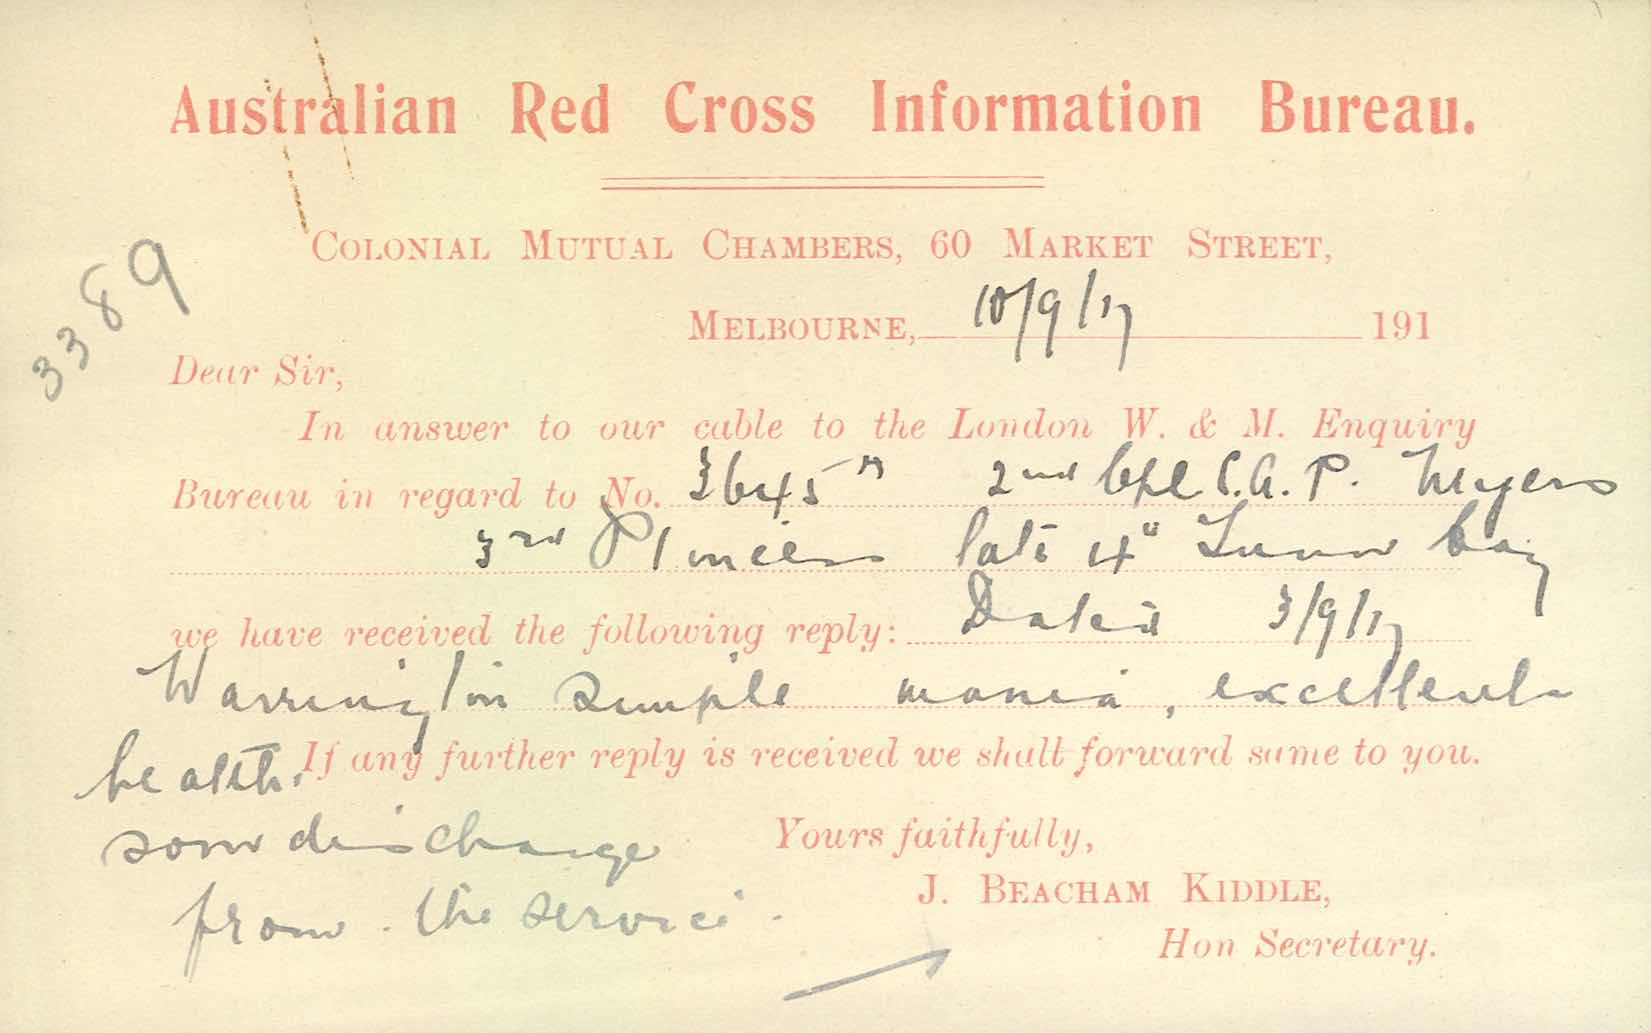 Australian Red Cross Information Bureau.
COLONIAL MUTUAL CHAMBERS, 60 MARKET STREET,
3389
MELBOURNE, 10/9/17 191
Dear Sir,
In answer to our cable to the London W. & M. Enquiry
Bureau in regard to No. 3645 2nd Cpl C.A.P. Myers
3rd Pioneers late 4"
we have received the following reply: Dated 3/9/17
Warrington simple mania, excellent
health. If any further reply is received we shall forward same to you.
soon discharge
from the service.
Yours faithfully,
J. BEACHAM KIDDLE,
Hon Secretary.